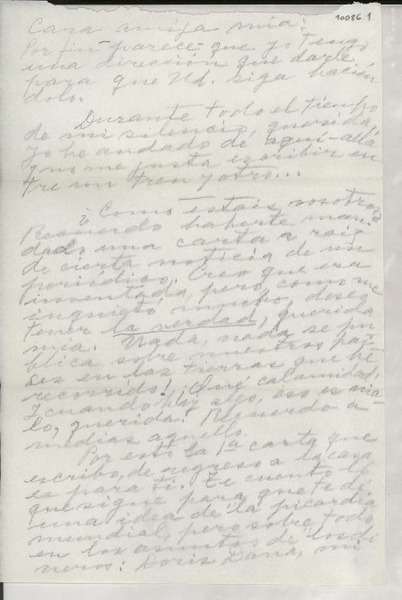 10086.1
Cara amiga mía:
Por fin parece que yo tengo
una dirección que darle
para que Ud. siga hacién
dolo.
Durante todo el tiempo
de mi silencio, querida,
yo he andado de aquí-allá
y no me gusta escribir en
tre un tren y otro...
¿Como estáis vosotros?
Recuerdo haberte man
dado una carta a raíz
de cierta noticia de un
periódico. Creo que era
inventada, pero, como me
inquietó mucho, deseo
tener la verdad, querida
mía. Nada, nada se pu
blica sobre nuestros paí
ses en las tierras que he
recorrido! ¡Qué calamidad!
Y cuando hay algo, eso es ma
lo, querida! Recuerdo a
medias aquello.
Por esto la 1a carta que
escribo, de regreso a la casa
es para ti. Te cuento lo
que sigue para que te dé
una idea de la picardía
mundial, pero sobre todo,
en los asuntos de los di
neros: Doris Dana, mi